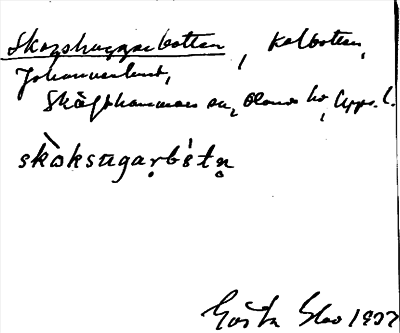 Skogshuggarbotten, Kolbotten,
Johannelund,
Skäfthammars sn, Olands hd, Upps. l.
skòksugạrbótn̥
Gösta 1927